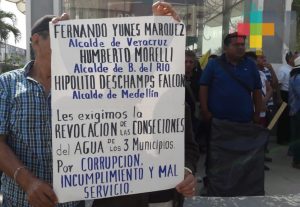 FERNANDO YUNES MÁRQUEZ
Alcalde de Veracruz
HUMBERTO MORELLI
Alcalde de B. del RÍO
HIPÓLITO DESCHAMPS FALCÓN
Alcalde de Medellín
Les exigimos la
REVOCACIÓN DE LAS CONSECIONES
del AGUA DE LOS 3 Municipios.
Por CORRUPCIÓN.
INCUMPLIMIENTO Y MAL
SERVICIO.